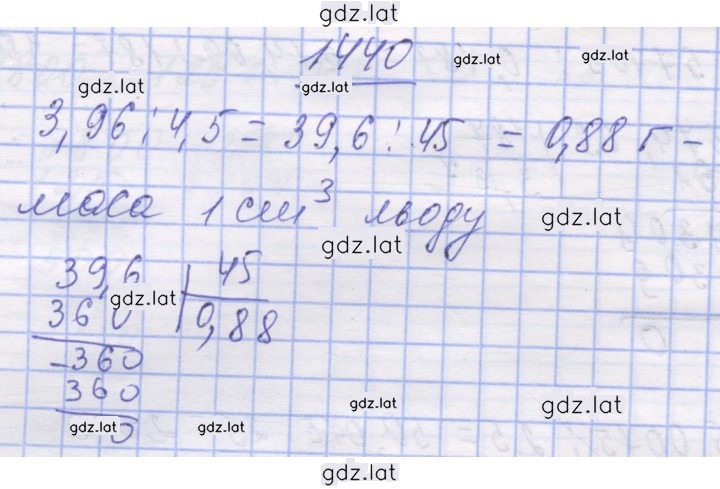 gdz.lat
1440
gdz.lat
gdz.lat
gdz.lat
gdz.lat
3,96 : 4,5 = 39,6 : 45 = 0,88 г -
маса 1 см³ льоду
gdz.lat
gdz.lat
39,6 | 45
360 | 0,88
gdz.lat
-360
360
0
gdz.lat
gdz.lat
gdz.lat
gdz.lat
gdz.lat